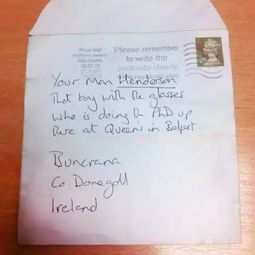 Royal Mail
Northern Ireland
Mail Centre
Please remember
to write the
postcode clearly
Your Man Henderson
That boy with the glasses
who is doing the PhD up
here at Queen's in Belfast
Buncrana
Co. Donegall
Ireland